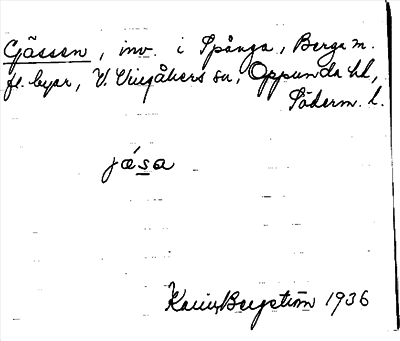 Gässen, inv. i Spånga, Berga m.
fl. byar, V. Vingåkers sn, Oppunda hd,
Söderm. l.
jä́sa
Karin Bergström 1936